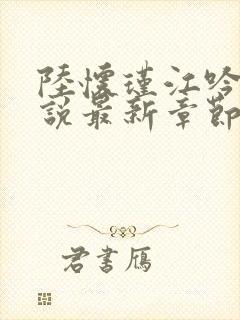 陸懷瑾江吟
說最新章節
君書雁